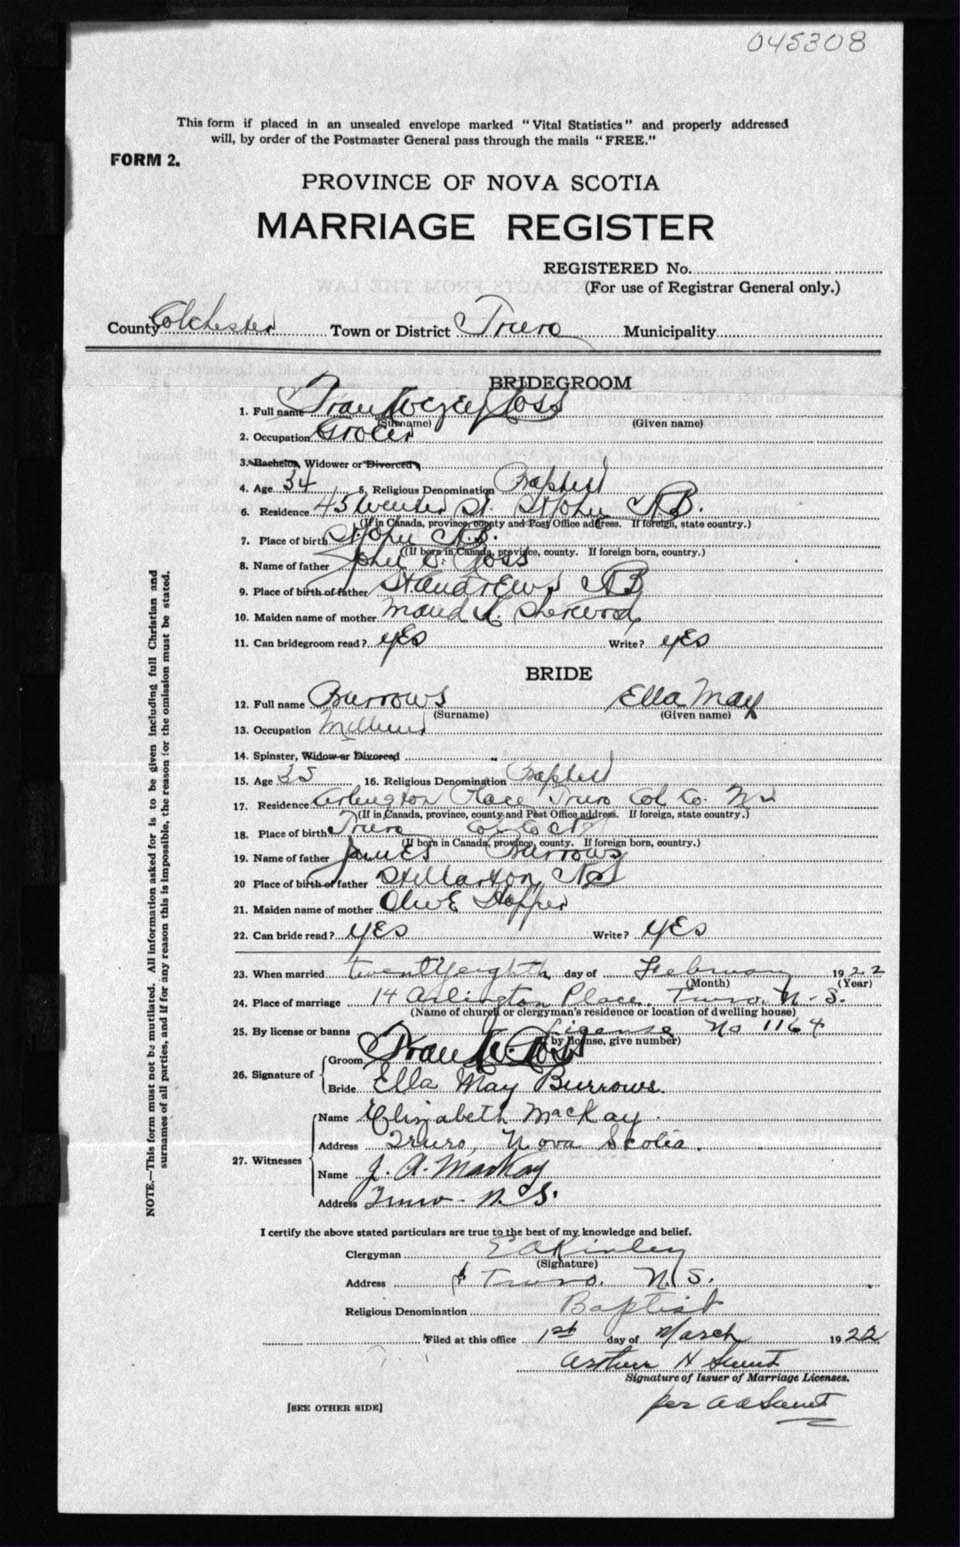 045308
This form if placed in an unsealed envelope marked "Vital Statistics" and properly addressed
will, by order of the Postmaster General pass through the mails "FREE."
FORM 2.
PROVINCE OF NOVA SCOTIA
MARRIAGE REGISTER
REGISTERED No.
(For use of Registrar General only.)
County Colchester Town or District Truro Municipality
BRIDEGROOM
1. Full name Frank Ross
(Surname) (Given name)
2. Occupation Grocer
3. Bachelor, Widower or Divorced
4. Age 34 5. Religious Denomination Baptist
6. Residence 45 St. St John N.B.
(If in Canada, province, county and Post Office address. If foreign, state country.)
7. Place of birth St John N.B.
(If born in Canada, province, county. If foreign born, country.)
8. Name of father John Ross
9. Place of birth of father St Andrews N B
10. Maiden name of mother Maud A. Sherwood
11. Can bridegroom read? yes Write? yes
BRIDE
12. Full name Burrows Ella May
(Surname) (Given name)
13. Occupation
14. Spinster, Widow or Divorced
15. Age 35 16. Religious Denomination Baptist
17. Residence Arlington Place Truro Col. Co. N S
(If in Canada, province, county and Post Office address. If foreign, state country.)
18. Place of birth Truro Col Co N S
(If born in Canada, province, county. If foreign born, country.)
19. Name of father James Burrows
20 Place of birth of father Stellarton, N S
21. Maiden name of mother Olive
22. Can bride read? yes Write? yes
23. When married twenty eighth day of February 1922
(Month) (Year)
24. Place of marriage 14 Arlington Place, Truro, N.S.
(Name of church or clergyman's residence or location of dwelling house)
25. By license or banns License No 1164
(by license, give number)
26. Signature of Groom Frank Ross
Bride Ella May Burrows.
27. Witnesses Name Elizabeth MacKay.
Address Truro, Nova Scotia.
Name J. A. MacKay
Address Truro - N.S.
I certify the above stated particulars are true to the best of my knowledge and belief.
Clergyman E A Kinley
(Signature)
Address Truro. N.S.
Religious Denomination Baptist
Filed at this office 1st day of March 1922
Arthur H
Signature of Issuer of Marriage Licenses.
per
[SEE OTHER SIDE]
NOTE.—This form must not be mutilated. All information asked for is to be given including full Christian and
surnames of all parties, and if for any reason this is impossible, the reason for the omission must be stated.